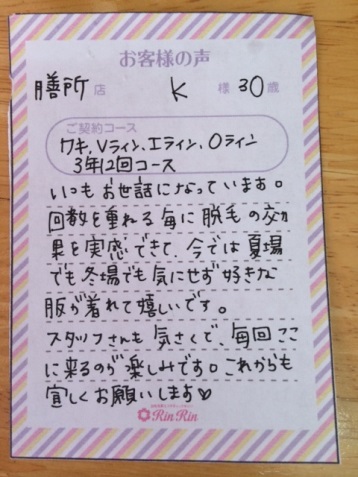 お客様の声
膳所 店 K 様 30 歳
ご契約コース
ワキ、Vライン、Iライン、Oライン
3年12回コース
いつもお世話になっています。
回数を重ねる毎に脱毛の効
果を実感できて、今では夏場
でも冬場でも気にせず好きな
服が着れて嬉しいです。
スタッフさんも気さくで、毎回ここ
に来るのが楽しみです。これからも
宜しくお願いします♡
RinRin